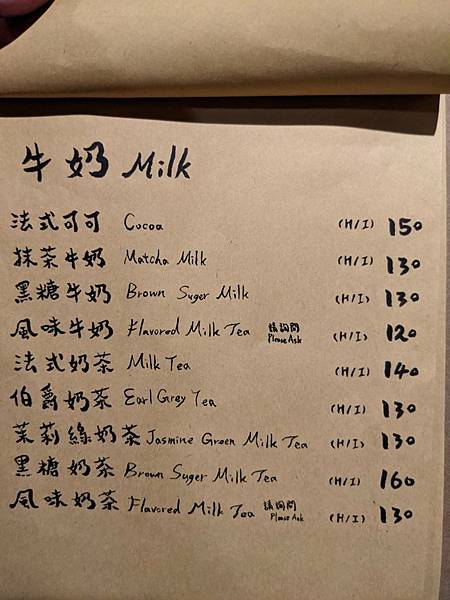 牛奶 Milk
法式可可 Cocoa (H/I) 150
抹茶牛奶 Matcha Milk (H/I) 130
黑糖牛奶 Brown Suger Milk (H/I) 130
風味牛奶 Flavored Milk Tea 請詢問 Please Ask (H/I) 120
法式奶茶 Milk Tea (H/I) 140
伯爵奶茶 Earl Grey Tea (H/I) 130
茉莉綠奶茶 Jasmine Green Milk Tea (H/I) 130
黑糖奶茶 Brown Suger Milk Tea (H/I) 160
風味奶茶 Flavored Milk Tea 請詢問 Please Ask (H/I) 130